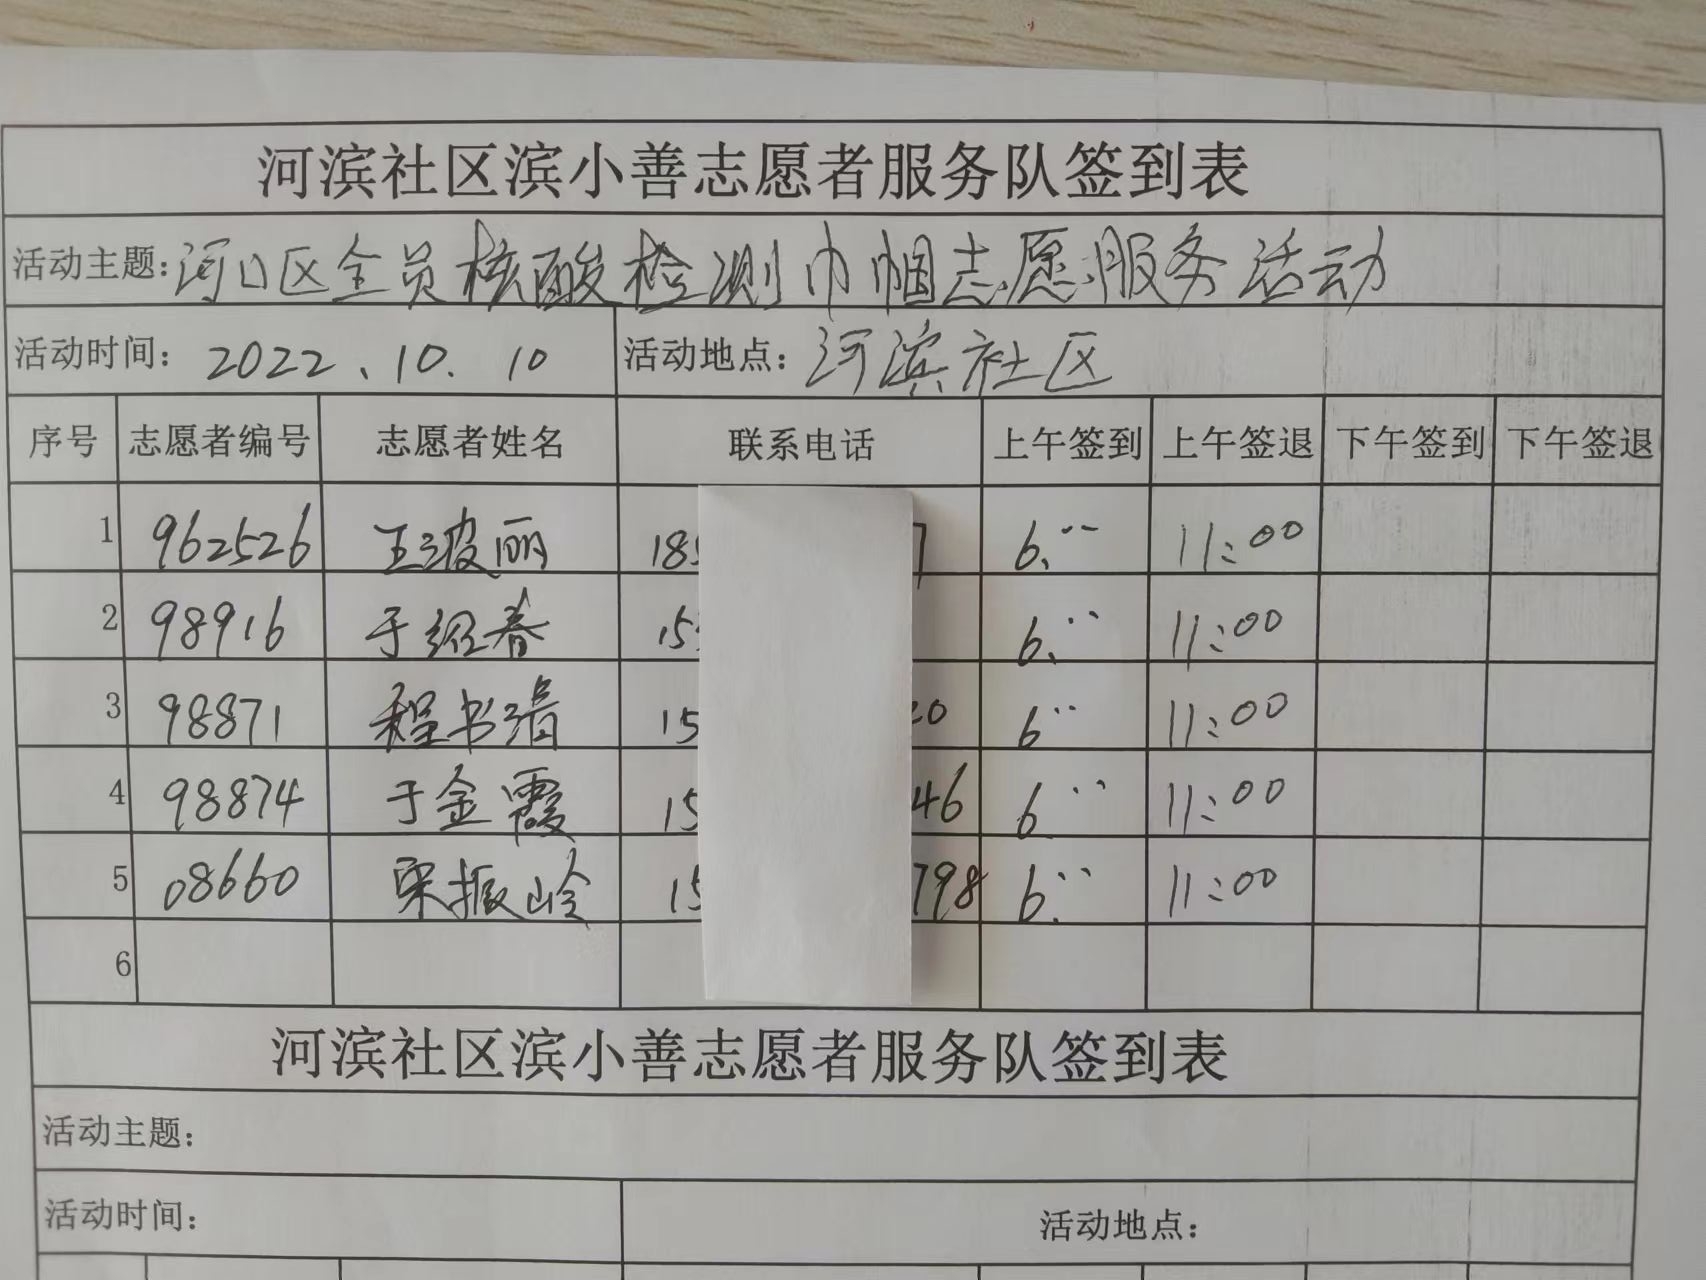 河滨社区滨小善志愿者服务队签到表
活动主题:河口区全员核酸检测巾帼志愿服务活动
活动时间: 2022、10. 10 活动地点: 河滨社区
序号 志愿者编号 志愿者姓名 联系电话 上午签到 上午签退 下午签到 下午签退
1 962526 王波丽 185 7 6:00 11:00
2 98916 于绍春 15 6:00 11:00
3 98871 程书清 15 20 6:00 11:00
4 98874 于金霞 15 46 6:00 11:00
5 08660 栗振岭 15 798 6:00 11:00
6
河滨社区滨小善志愿者服务队签到表
活动主题:
活动时间: 活动地点: